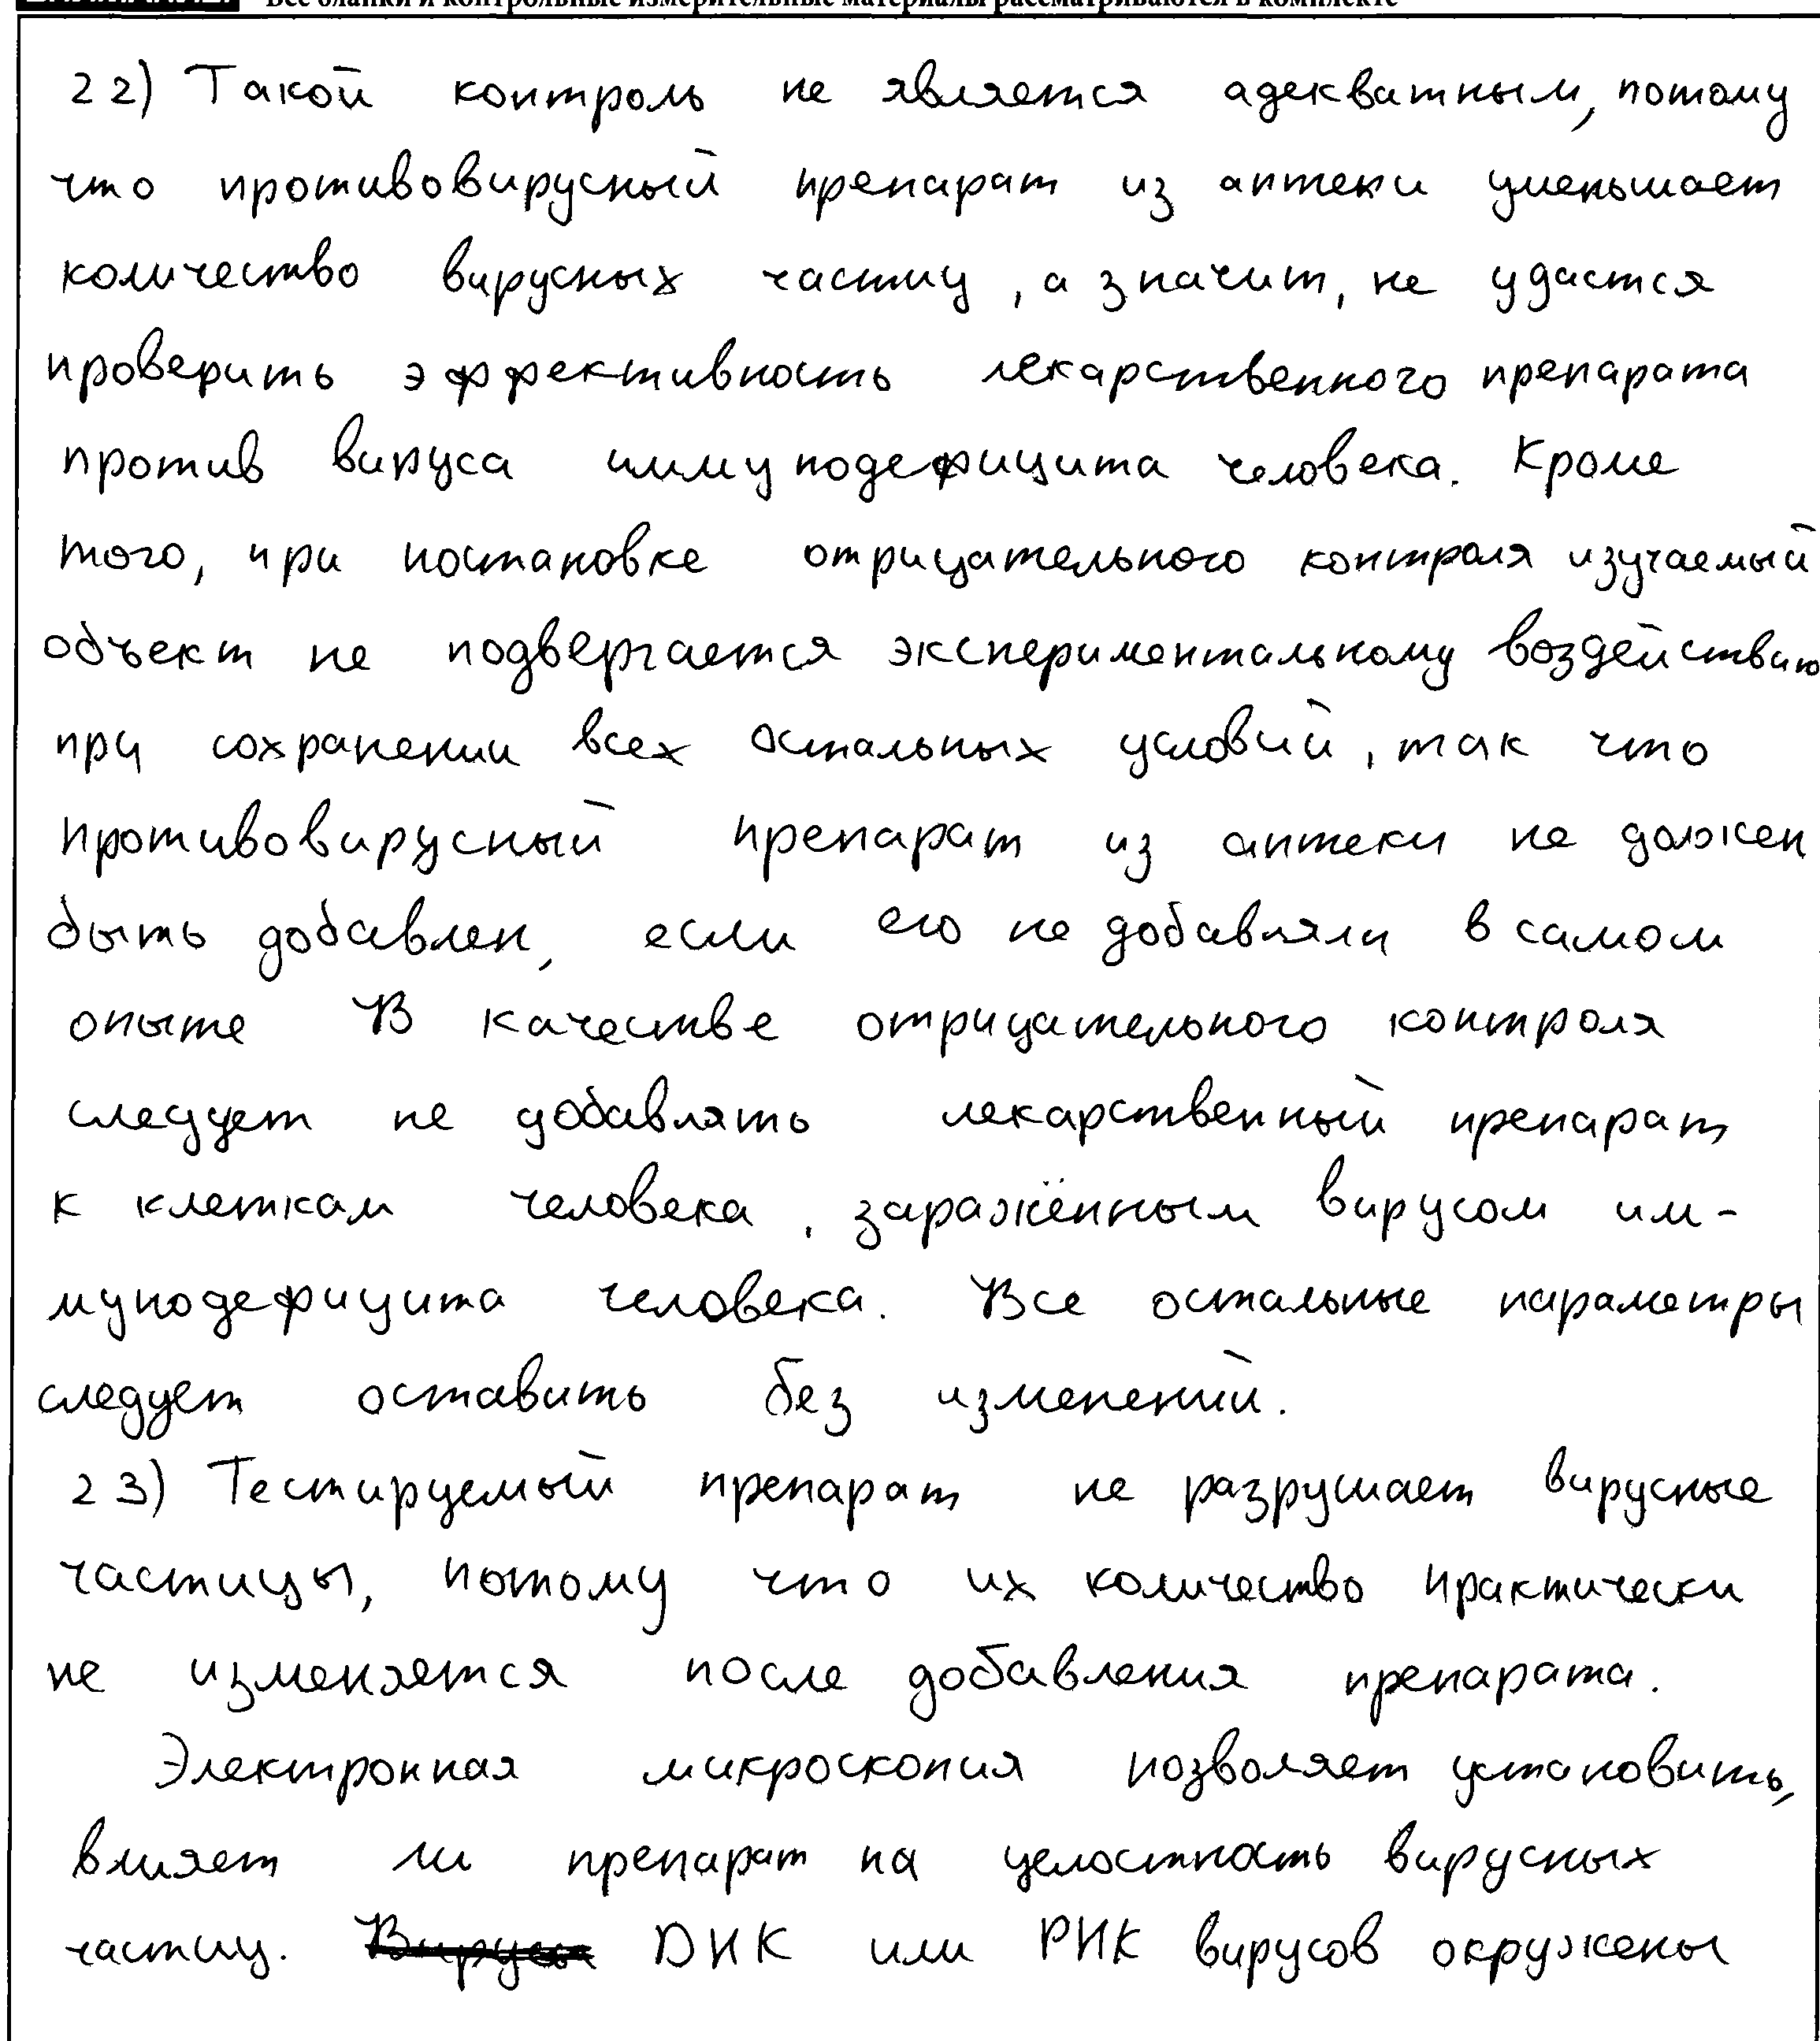 Все бланки и контрольные измерительные материалы рассматриваются в комплекте
22) Такой контроль не является адекватным, потому
что противовирусный препарат из аптеки уменьшает
количество вирусных частиц, а значит, не удастся
проверить эффективность лекарственного препарата
против вируса иммунодефицита человека. Кроме
того, при постановке отрицательного контроля изучаемый
объект не подвергается экспериментальному воздействию
при сохранении всех остальных условий, так что
противовирусный препарат из аптеки не должен
быть добавлен, если его не добавляли в самом
опыте В качестве отрицательного контроля
следует не добавлять лекарственный препарат
к клеткам человека, заражённым вирусом им-
мунодефицита человека. Все остальные параметры
следует оставить без изменений.
23) Тестируемый препарат не разрушает вирусные
частицы, потому что их количество практически
не изменяется после добавления препарата.
Электронная микроскопия позволяет установить,
влияет ли препарат на целостность вирусных
частиц. ДНК или РНК вирусов окружены